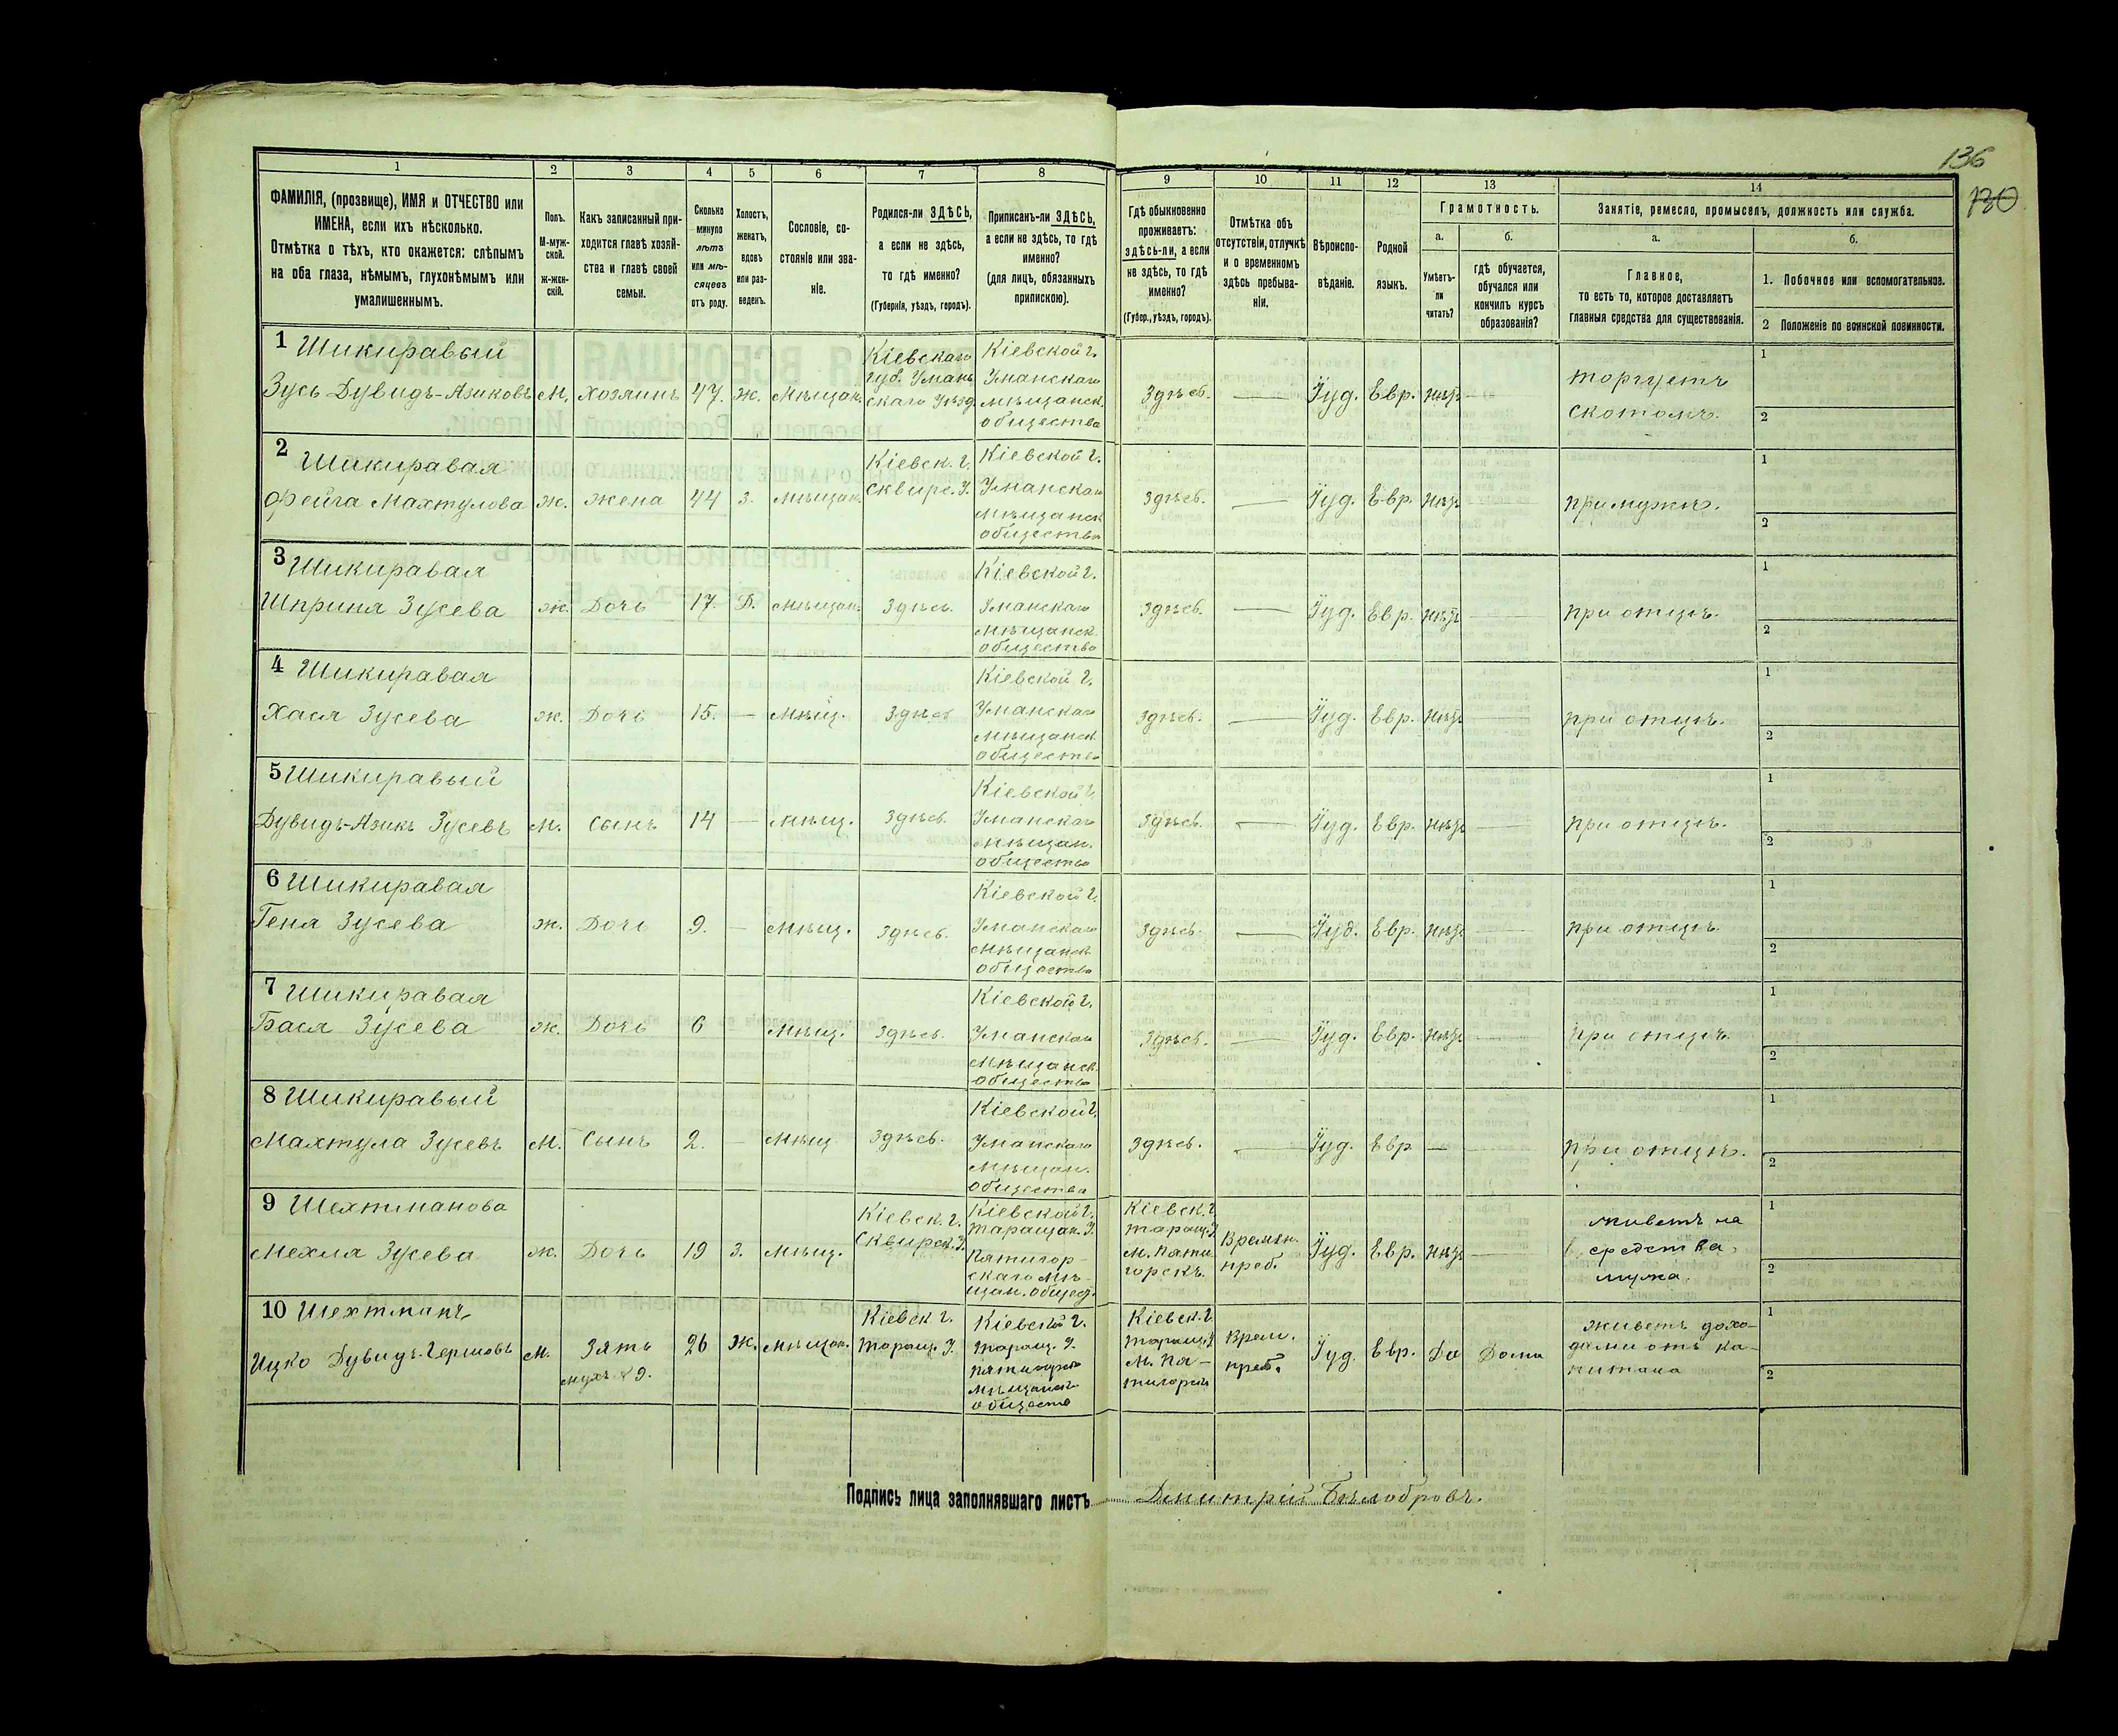 136
130
1
2
3
4
5
6
7
8
9
10
11
12
13
14
ФАМИЛІЯ, (прозвище), ИМЯ и ОТЧЕСТВО или
ИМЕНА, если ихъ нѣсколько.
Отмѣтка о тѣхъ, кто окажется: слѣпымъ
на оба глаза, нѣмымъ, глухонѣмымъ или
умалишеннымъ.
Полъ.
М-муж-
ской.
Ж-жен-
скій.
Какъ записанный при-
ходится главѣ хозяй-
ства и главѣ своей
семьи.
Сколько
минуло
лѣтъ
или мѣ-
сяцевъ
отъ роду.
Холостъ,
женатъ,
вдовъ
или раз-
веденъ.
Сословіе, со-
стояніе или зва-
ніе.
Родился-ли ЗДѢСЬ,
а если не здѣсь,
то гдѣ именно?
(Губернія, уѣздъ, городъ).
Приписанъ-ли ЗДѢСЬ,
а если не здѣсь, то гдѣ
именно?
(для лицъ, обязанныхъ
припискою).
Гдѣ обыкновенно
проживаетъ:
здѣсь-ли, а если
не здѣсь, то гдѣ
именно?
(Губер., уѣздъ, городъ).
Отмѣтка объ
отсутствіи, отлучкѣ
и о временномъ
здѣсь пребыва-
ніи.
Вѣроиспо-
вѣданіе.
Родной
языкъ.
Грамотность.
а.
Умѣетъ-
ли
читать?
б.
гдѣ обучается,
обучался или
кончилъ курсъ
образованія?
Занятіе, ремесло, промыселъ, должность или служба.
а.
Главное,
то есть то, которое доставляетъ
главныя средства для существованія.
б.
1. Побочное или вспомогательное.
2 Положеніе по воинской повинности.
1 Шикиравый
Зусь Дувидъ-Азиковъ
М.
Хозяинъ
47.
Ж.
Мѣщан.
Кіевская
губ. Уман
скаго Уѣзд.
Кіевской г.
Уманскаго
мѣщанск.
общества
Здѣсь.
—
Іуд.
Евр.
Нѣтъ
—
торгуетъ
скотомъ.
1
2
2 Шикиравая
Фейга Махтулова
ж.
жена
44
З.
Мѣщан.
Кіевск. г.
Сквирс. У.
Кіевской г.
Уманскаго
мѣщанск
общества
здѣсь.
—
Іуд.
Евр.
Нѣтъ
при мужѣ.
1
2
3 Шикиравая
Шприня Зусева
ж.
Дочь
17.
Д.
мѣщан.
Здѣсь.
Кіевской г.
Уманскаго
мѣщанск.
общества
здѣсь.
—
Іуд.
Евр.
Нѣтъ
при отцѣ.
1
2
4 Шикиравая
Хася Зусева
ж.
Дочь
15.
—
Мѣщ.
Здѣсь
Кіевской г.
Уманскаго
мѣщанск
общества
здѣсь.
—
Іуд.
Евр.
Нѣтъ
при отцѣ.
1
2
5 Шикиравый
Дувидъ-Азикъ Зусевъ
М.
Сынъ
14
—
мѣщ.
Здѣсь
Кіевской г.
Уманскаго
мѣщан.
общества
здѣсь.
—
Іуд.
Евр.
Нѣтъ
—
при отцѣ.
1
2
6 Шикиравая
Геня Зусева
ж.
Дочь
9.
—
Мѣщ.
здѣсь.
Кіевской г.
Уманскаго
мѣщанск
общества
здѣсь.
—
Іуд.
Евр.
Нѣтъ
—
при отцѣ.
1
2
7 Шикиравая
Бася Зусева
ж.
Дочь
6
—
Мѣщ.
здѣсь.
Кіевской г.
Уманскаго
мѣщанск.
общества
здѣсь.
—
Іуд.
Евр.
Нѣтъ
—
при отцѣ.
1
2
8 Шикиравый
Махтула Зусевъ
М.
Сынъ
2.
—
Мѣщ
Здѣсь.
Кіевской г.
Уманскаго
мѣщан.
общества
здѣсь.
—
Іуд.
Евр
—
при отцѣ.
1
2
9 Шехтманова
Мехля Зусева
ж.
Дочь
19
З.
Мѣщ.
Кіевск. г.
Сквирск. У.
Кіевской г.
Таращан. У.
Пятигор-
скаго мѣ-
щан. общес.
Кіевск. г.
таращ. У.
м. Пяти
горскъ.
Времен.
преб.
Іуд.
Евр.
Нѣтъ
—
живетъ на
средства
мужа.
1
2
10 Шехтманъ
Ицко Дувидъ-Гершовъ
М.
Зять
мужъ № 9.
26
Ж.
Мѣщан.
Кіевск г.
Таращ. У.
Кіевской г.
Таращ. У.
мѣщанск
обществ
Кіевск. г.
Таращ. У
м. Пя-
тигорск
Врем.
преб.
Іуд.
Евр.
Да
Дома
живетъ дохо-
дами отъ ка-
питала
1
2
Подпись лица заполнявшаго листъ
Дмитрій Бѣлобровъ.